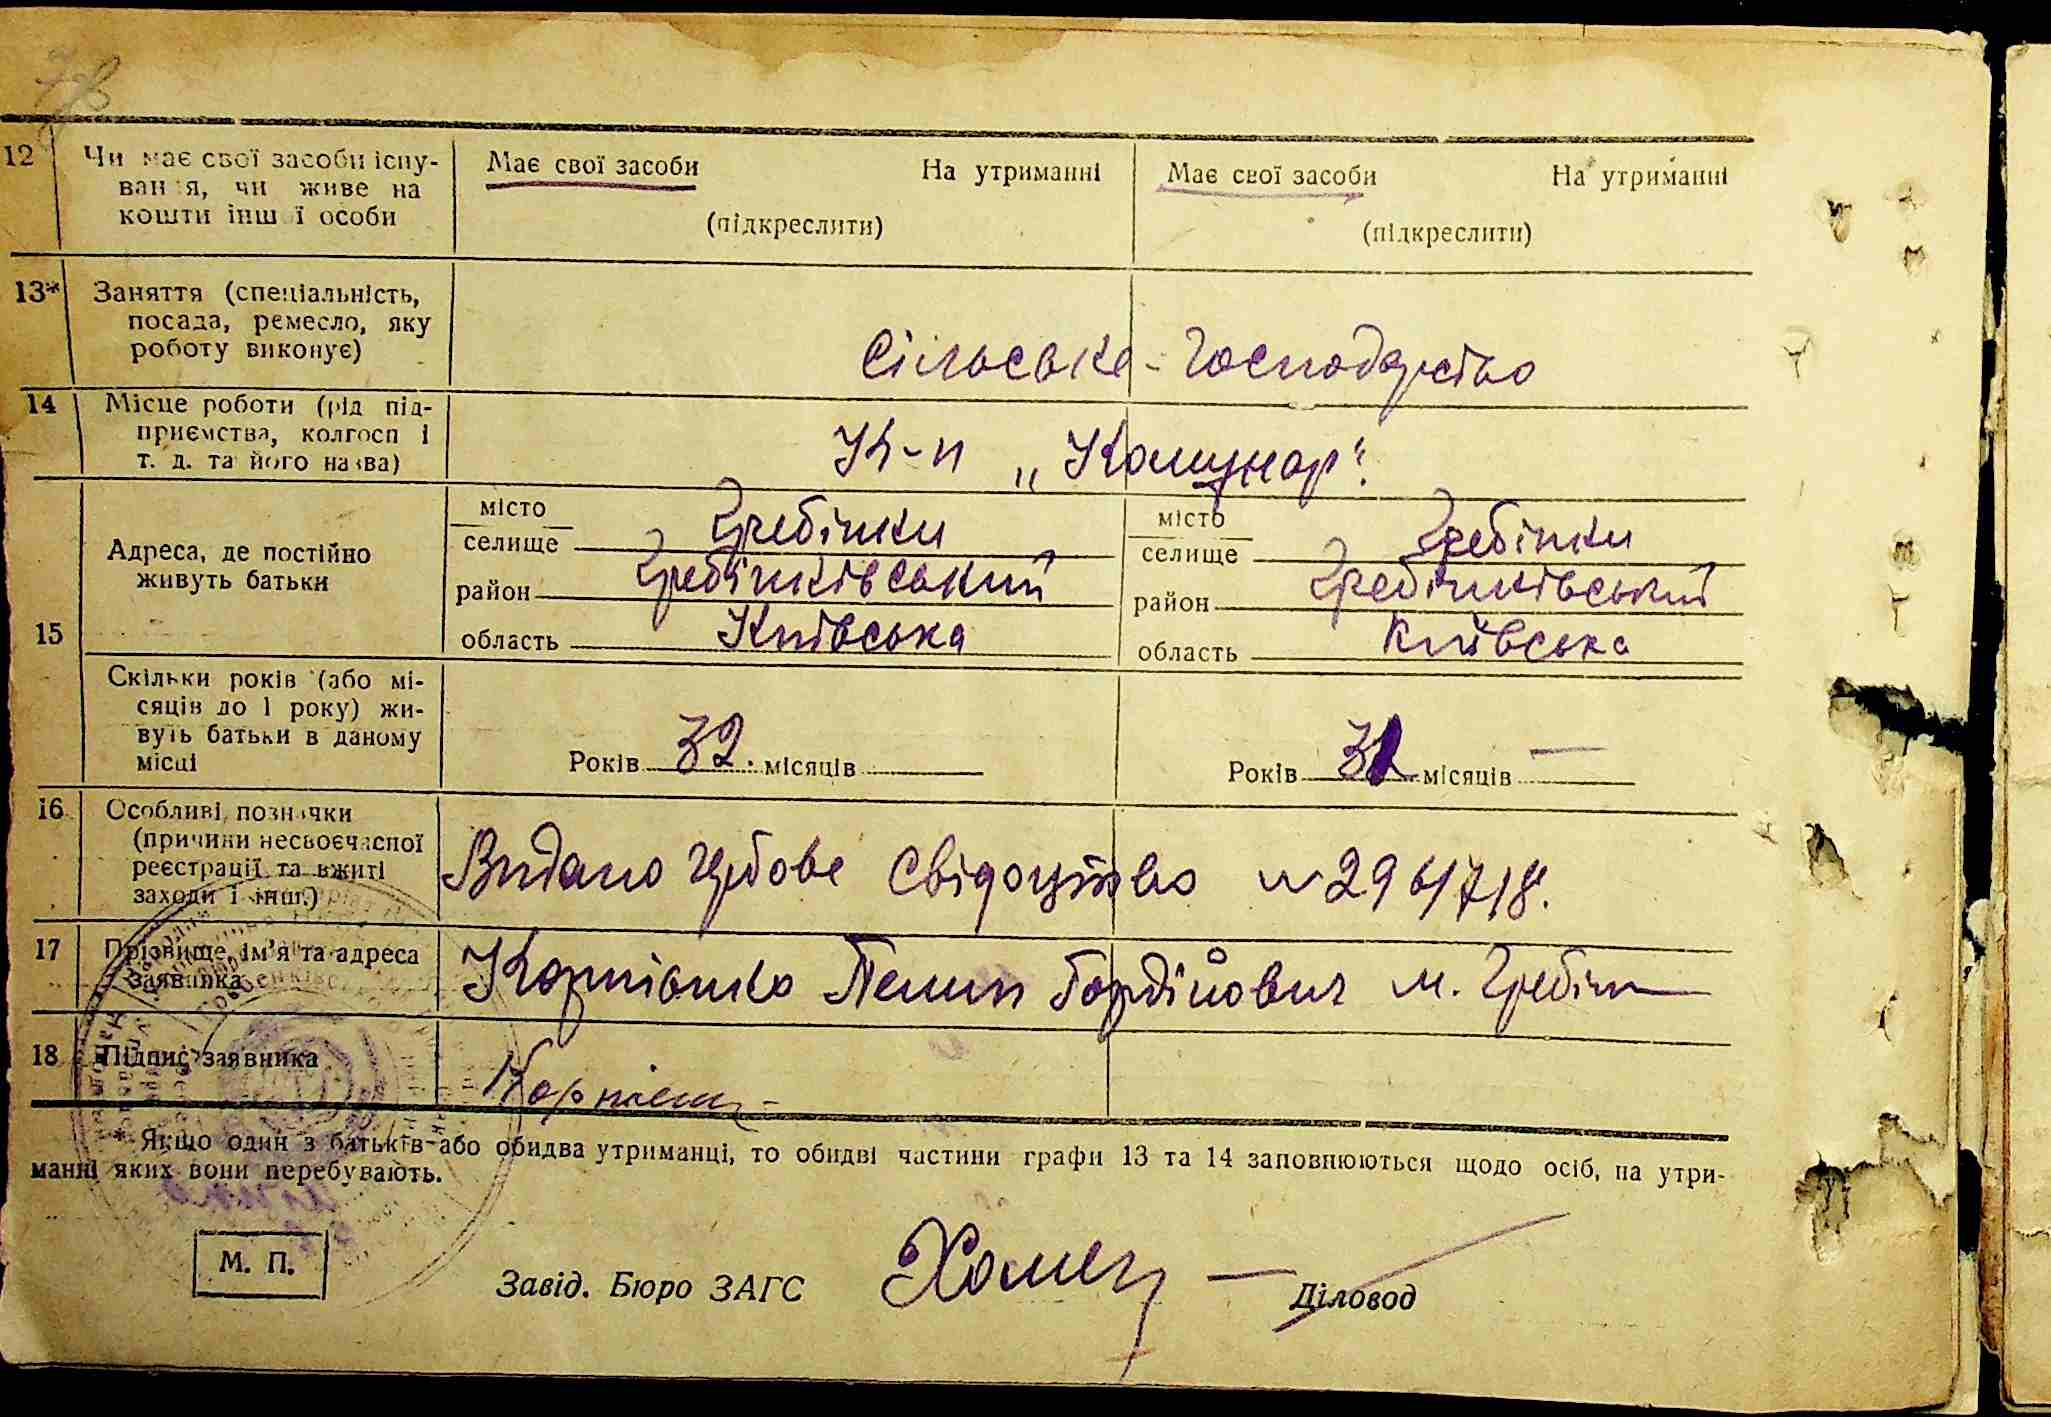 12 Чи має свої засоби існу-
вання, чи живе на
кошти іншої особи
Має свої засоби На утриманні
(підкреслити)
Має свої засоби На утриманні
(підкреслити)
13* Заняття (спеціальність,
посада, ремесло, яку
роботу виконує)
Сільське-господарство
14 Місце роботи (рід під-
приємства, колгосп і
т. д. та його назва)
К-п „Комунар“.
15
Адреса, де постійно
живуть батьки
місто
селище Гребінки
район Гребінківський
область Київська
місто
селище Гребінки
район Гребінківський
область Київська
Скільки років (або мі-
сяців до 1 року) жи-
вуть батьки в даному
місці
Років 32. місяців
Років 31 місяців —
16 Особливі позначки
(причини несвоєчасної
реєстрації та вжиті
заходи і інш.)
Видано гербове свідоцтво N 296718.
17 Прізвище, ім'я та адреса
заявника
Корнієнко Гордійович м. Гребінки
18 Підпис заявника
* Якщо один з батьків або обидва утриманці, то обидві частини графи 13 та 14 заповнюються щодо осіб, на утри-
манні яких вони перебувають.
М. П.
Завід. Бюро ЗАГС Діловод